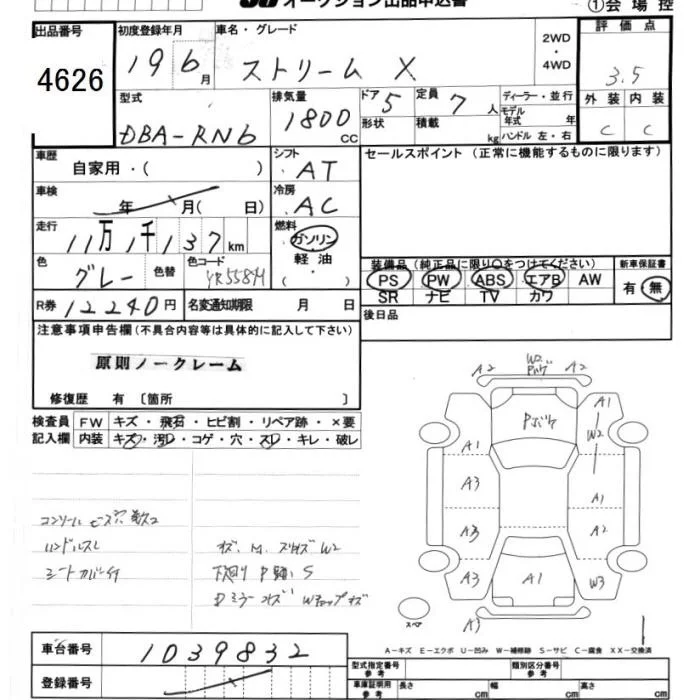 オークション出品申込書
①会場控
出品番号 初度登録年月 車名・グレード 2WD ・ 4WD 評価点
4626 19 6月 ストリーム X 3.5
型式 排気量 ドア 5 定員 7人 ディーラー・並行 外装 内装
DBA-RN6 1800cc 形状 積載 kg モデル年式 年 C C
ハンドル 左・右
車歴 自家用・( ) シフト AT セールスポイント(正常に機能するものに限ります)
車検 年 月( 日) 冷房 AC
走行 11万1千137km 燃料 ガソリン
軽油
( ・ )
色 グレー 色替 色コード YR558M
装備品(純正品に限り○をつけてください) 新車保証書
PS PW ABS エアB AW 有・無
SR ナビ TV カワ
R券 12240円 名変通知期限 月 日
後日品
注意事項申告欄(不具合内容等は具体的に記入して下さい)
原則ノークレーム
修復歴 有 〔箇所 〕
検査員記入欄 FW キズ・飛石・ヒビ割・リペア跡・×要
内装 キズ・汚レ・コゲ・穴・スレ・キレ・破レ
A2 W2 A2
A1
A1 W2
A3 A1
A3 A2
A3 A1 W3
コンソールビス穴数コ
ハンドルスレ
シートカバー付
下回り
スペア
A3
1
A-キズ E-エクボ U-凹み W-補修跡 S-サビ C-腐食 XX-交換済
車台番号 1039832
登録番号
型式指定番号 参考 類別区分番号 参考
車庫証明用 参考 長さ cm 幅 cm 高さ cm